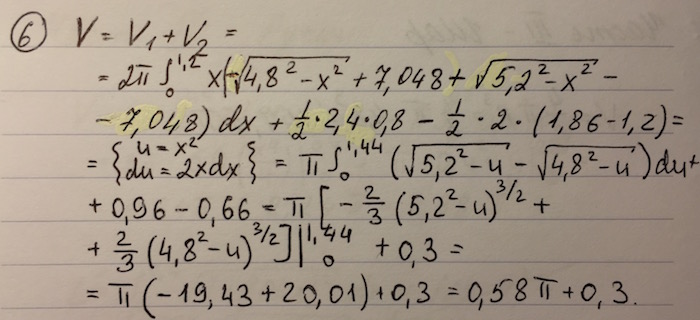 ⑥ V = V₁ + V₂ =
= 2π ∫₀^1,2 x(-√(4,8² - x²) + 7,048 + √(5,2² - x²) -
- 7,048) dx + 1/2 · 2,4 · 0,8 - 1/2 · 2 · (1,86 - 1,2) =
= {u = x² du = 2xdx} = π ∫₀^1,44 (√(5,2² - u) - √(4,8² - u)) du +
+ 0,96 - 0,66 = π [ - 2/3 (5,2² - u)^3/2 +
+ 2/3 (4,8² - u)^3/2 ]|₀^1,44 + 0,3 =
= π (-19,43 + 20,01) + 0,3 = 0,58π + 0,3.